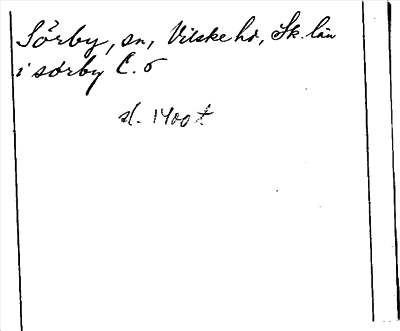 Sörby, sn, Vilske hd, Sk. län
i sörby C. 6
sl. 1400 t